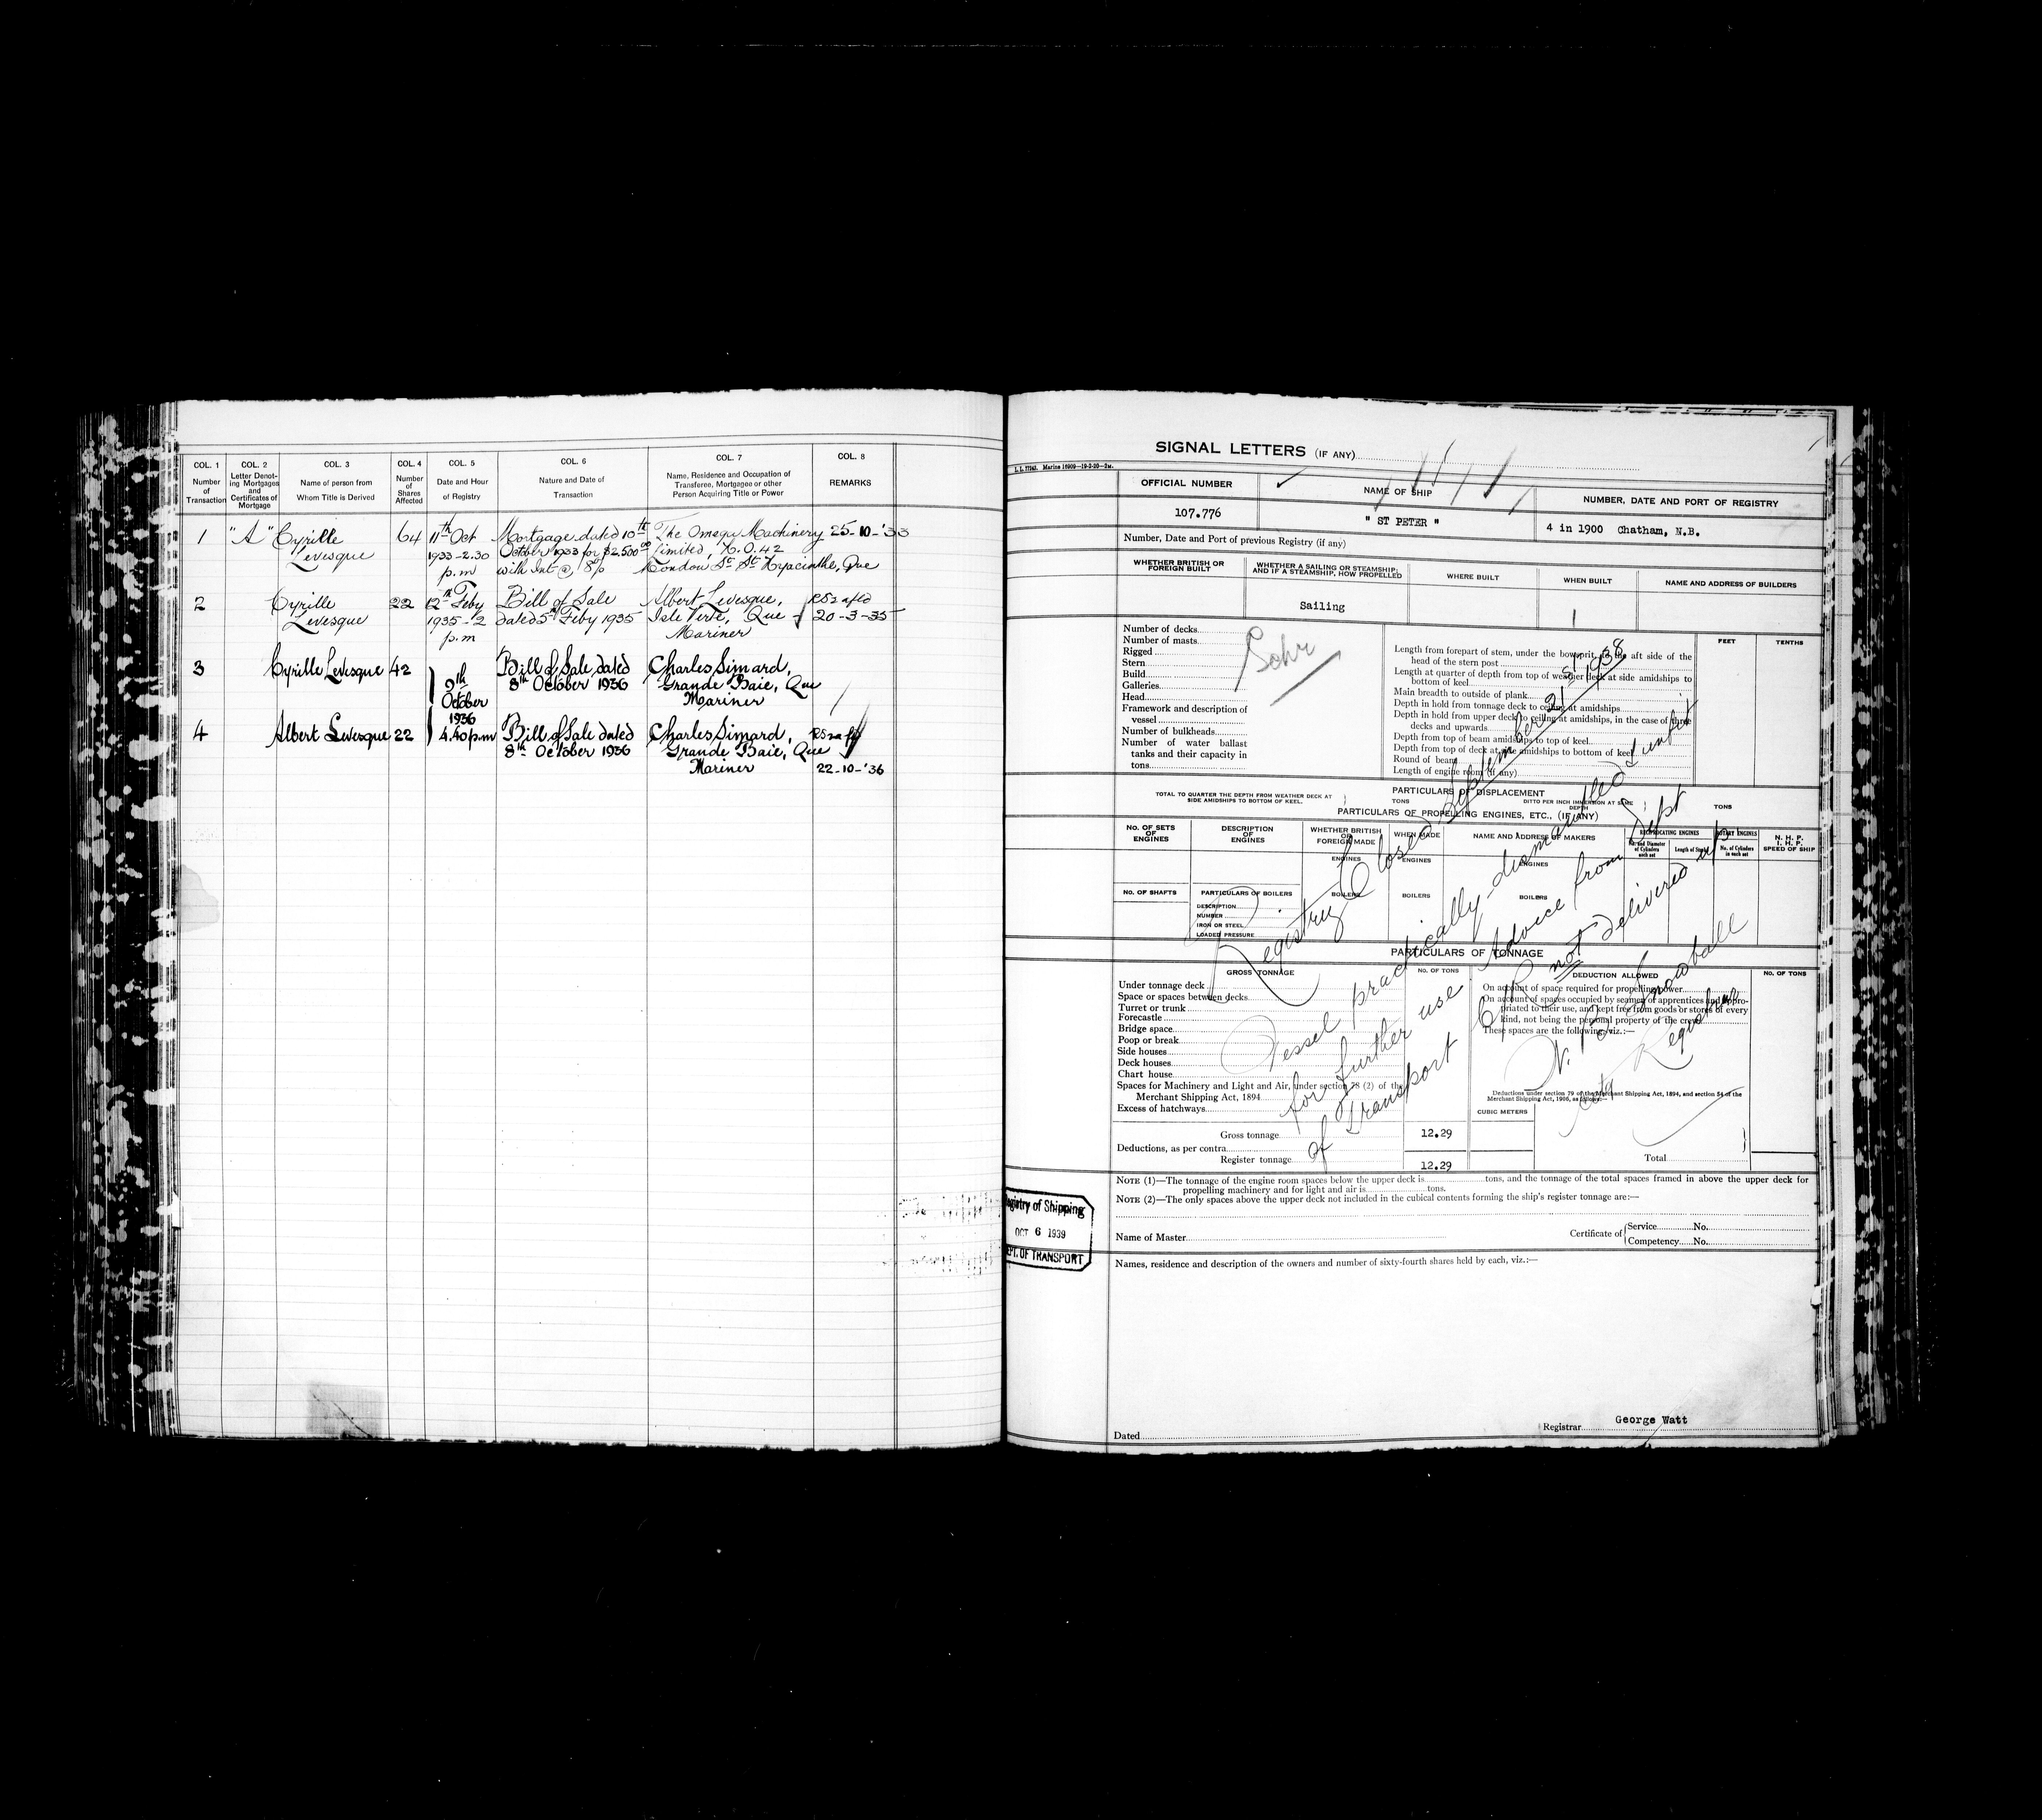 COL. 1
Number
of
Transaction
COL. 2
Letter Denot-
ing Mortgages
and
Certificates of
Mortgage
COL. 3
Name of person from
Whom Title is Derived
COL. 4
Number
of
Shares
Affected
COL. 5
Date and Hour
of Registry
COL. 6
Nature and Date of
Transaction
COL. 7
Name, Residence and Occupation of
Transferee, Mortgagee or other
Person Acquiring Title or Power
COL. 8
REMARKS
1 "A" Cyrille 64 11th Oct Mortgage dated 10th The Omega Machinery 25-10-'33
Levesque 1933-2.30 October 1933 for $2,500 00 Limited, 42
p.m with Int @ 8% London St St Hyacinthe, Que
2 Cyrille 22 12th Feby Bill of Sale Albert Levesque,
Levesque 1935-2 dated 5th Feby 1935 Isle Verte, Que 20-3-35
p.m Mariner
3 Cyrille Levesque 42 9th Bill of Sale dated Charles Simard,
October 8th October 1936 Grande Baie, Que
1936 Mariner
4 Albert Levesque 22 4.40 p.m Bill of Sale dated Charles Simard,
8th October 1936 Grande Baie, Que
Mariner 22-10-'36
SIGNAL LETTERS (IF ANY)
L. L. 77243. Marine 16909—19-2-20—2M.
OFFICIAL NUMBER
NAME OF SHIP
NUMBER, DATE AND PORT OF REGISTRY
107.776
" ST PETER "
4 in 1900 Chatham, N.B.
Number, Date and Port of previous Registry (if any)
WHETHER BRITISH OR
FOREIGN BUILT
WHETHER A SAILING OR STEAMSHIP;
AND IF A STEAMSHIP, HOW PROPELLED
WHERE BUILT
WHEN BUILT
NAME AND ADDRESS OF BUILDERS
Sailing
Number of decks
Number of masts
Rigged
Stern
Build
Galleries
Head
Framework and description of
vessel
Number of bulkheads
Number of water ballast
tanks and their capacity in
tons
Schr
FEET
TENTHS
Length from forepart of stem, under the bowsprit, to the aft side of the
head of the stern post
Length at quarter of depth from top of weather deck at side amidships to
bottom of keel
Main breadth to outside of plank
Depth in hold from tonnage deck to ceiling at amidships
Depth in hold from upper deck to ceiling at amidships, in the case of three
decks and upwards
Depth from top of beam amidships to top of keel
Depth from top of deck at side amidships to bottom of keel
Round of beam
Length of engine room (if any)
PARTICULARS OF DISPLACEMENT
TOTAL TO QUARTER THE DEPTH FROM WEATHER DECK AT
SIDE AMIDSHIPS TO BOTTOM OF KEEL.
TONS
DITTO PER INCH IMMERSION AT SAME
DEPTH
TONS
PARTICULARS OF PROPELLING ENGINES, ETC., (IF ANY)
NO. OF SETS
OF
ENGINES
DESCRIPTION
OF
ENGINES
WHETHER BRITISH
OR
FOREIGN MADE
WHEN MADE
NAME AND ADDRESS OF MAKERS
RECIPROCATING ENGINES
No. and Diameter
of Cylinders
each set
Length of Stroke
ROTARY ENGINES
No. of Cylinders
in each set
N. H. P.
I. H. P.
SPEED OF SHIP
ENGINES
ENGINES
ENGINES
NO. OF SHAFTS
PARTICULARS OF BOILERS
BOILERS
BOILERS
BOILERS
DESCRIPTION
NUMBER
IRON OR STEEL
LOADED PRESSURE
Registry Closed September 21st 1938
Vessel practically dismantled & unfit
for further use Advice from Dept
of Transport C/R not delivered up
N. B. Snowball
actg Registrar
PARTICULARS OF TONNAGE
GROSS TONNAGE
NO. OF TONS
DEDUCTION ALLOWED
NO. OF TONS
Under tonnage deck
Space or spaces between decks
Turret or trunk
Forecastle
Bridge space
Poop or break
Side houses
Deck houses
Chart house
Spaces for Machinery and Light and Air, under section 78 (2) of the
Merchant Shipping Act, 1894
Excess of hatchways
On account of space required for propelling power
On account of spaces occupied by seamen or apprentices and appro-
priated to their use, and kept free from goods or stores of every
kind, not being the personal property of the crew
These spaces are the following, viz.:—
Deductions under section 79 of the Merchant Shipping Act, 1894, and section 54 of the
Merchant Shipping Act, 1906, as follows:—
CUBIC METERS
Gross tonnage 12.29
Deductions, as per contra
Register tonnage 12.29
Total
NOTE (1)—The tonnage of the engine room spaces below the upper deck is tons, and the tonnage of the total spaces framed in above the upper deck for
propelling machinery and for light and air is tons.
NOTE (2)—The only spaces above the upper deck not included in the cubical contents forming the ship's register tonnage are:—
gistry of Shipping
OCT 6 1939
EPT. OF TRANSPORT
Name of Master
Certificate of
Service No.
Competency No.
Names, residence and description of the owners and number of sixty-fourth shares held by each, viz.:—
George Watt
Dated
Registrar